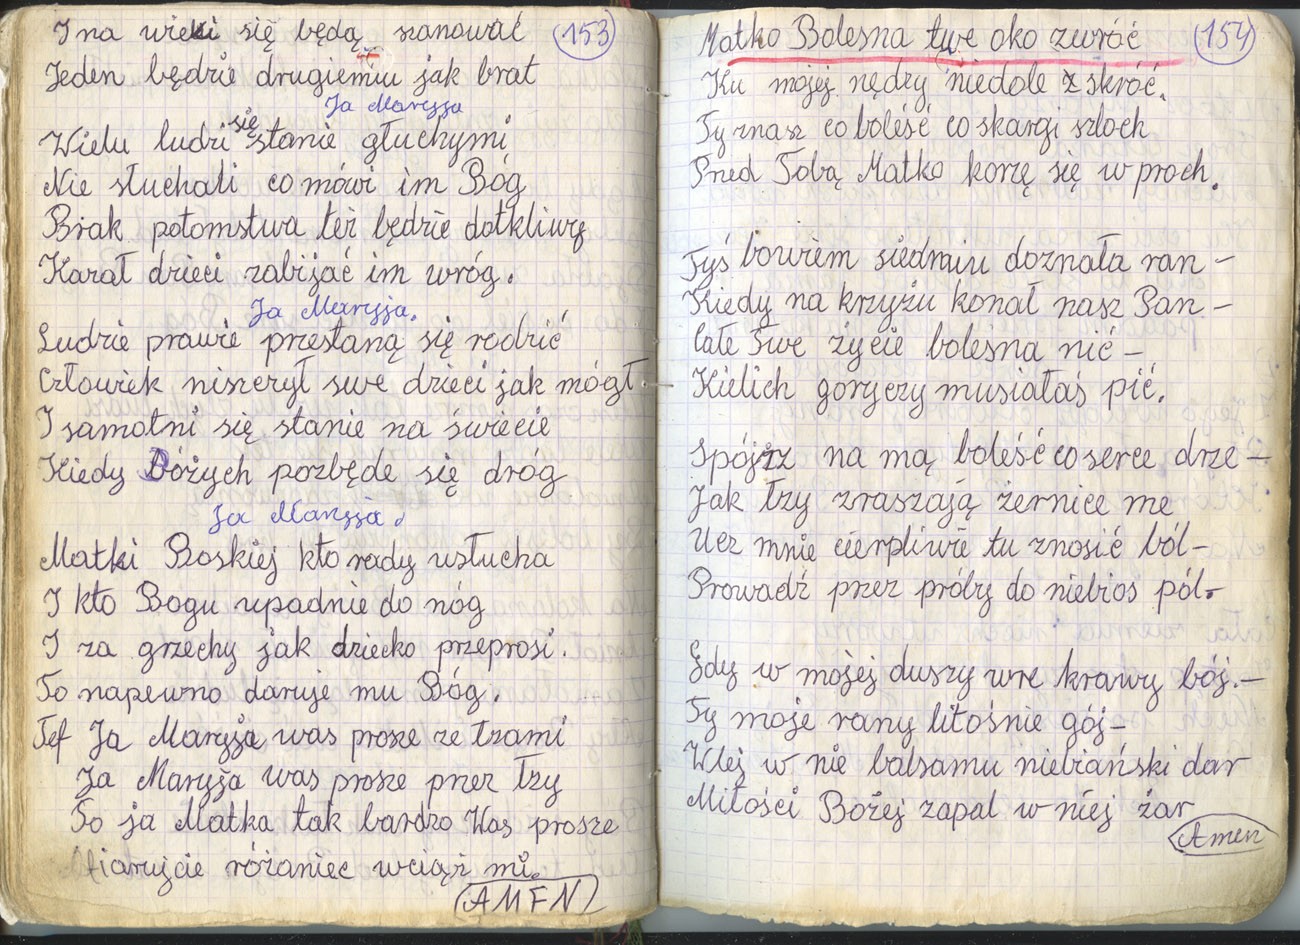 I na wieki się będą szanować (153)
Jeden będzie drugiemiu jak brat
Ja Maryjja
Wielu ludzi się stanie głuchymi
Nie słuchali co mówi im Bóg
Brak potomstwa też będzie dotkliwy
Karał dzieci zabijać im wróg.
Ja Maryjja.
Ludzie prawie przestaną się rodzić
Człowiek niszczył swe dzieci jak mógł
I samotni się stanie na świecie
Kiedy Bóżych pozbęde się dróg
Ja Maryjja.
Matki Boskiej kto rady wsłucha
I kto Bogu upadnie do nóg
I za grzechy jak dziecko przeprosi.
To napewno daruje mu Bóg.
Ref Ja Maryja was prosze ze łzami
Ja Maryja was prosze przez łzy
To ja Matka tak bardzo Was prosze
Ofiarujcie różaniec wciąż mi.
AMEN
Matko Bolesna twe oko zwróć (154)
Ku mojej nędzy niedole z skróć.
Ty znasz co boleść co skargi szloch
Przed Tobą Matko korzę się w proch.
Tyś bowiem siedmiu doznała ran –
Kiedy na krzyżu konał nasz Pan –
Całe Twe życie bolesna nić –
Kielich goryczy musiałaś pić.
Spójrz na mą boleść co serce drze –
Jak łzy zraszają żernice me
Ucz mnie cierpliwie tu znosić ból –
Prowadź przez próby do niebios pól.
Gdy w mojej duszy wre krawy bój. –
Ty moje rany litośnie gój –
Wlej w nie balsamu niebiański dar
Miłości Bożej zapal w niej żar
Amen